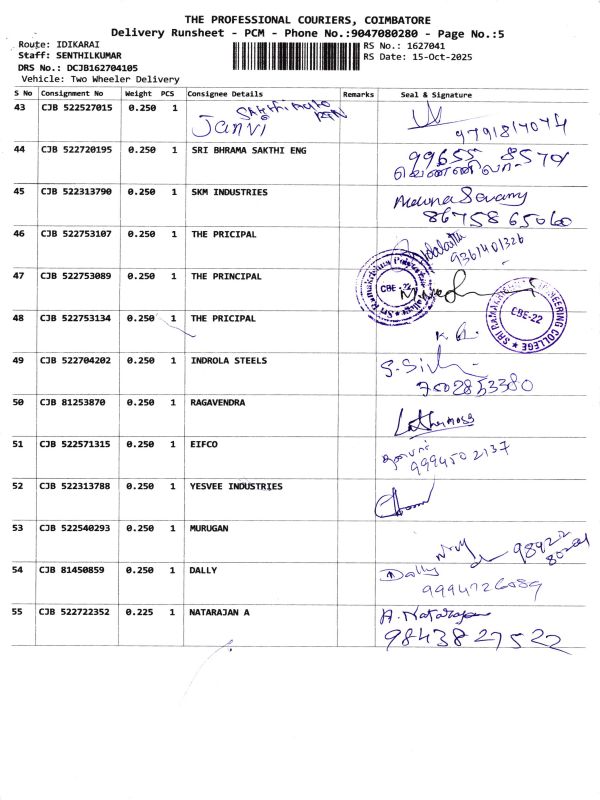 THE PROFESSIONAL COURIERS, COIMBATORE
Delivery Runsheet - PCM - Phone No.:9047080280 - Page No.:5
Route: IDIKARAI
RS No.: 1627041
Staff: SENTHILKUMAR
RS Date: 15-Oct-2025
DRS No.: DCJB162704105
Vehicle: Two Wheeler Delivery
S No Consignment No Weight PCS Consignee Details Remarks Seal & Signature
43 CJB 522527015 0.250 1 Sakthi Auto
Janvi
9791817074
44 CJB 522720195 0.250 1 SRI BHRAMA SAKTHI ENG 99655 8570
45 CJB 522313790 0.250 1 SKM INDUSTRIES
86758 65060
46 CJB 522753107 0.250 1 THE PRICIPAL
9361401326
47 CJB 522753089 0.250 1 THE PRINCIPAL
CBE-22
SRI RAMAKRISHNA ENGINEERING COLLEGE
CBE-22
48 CJB 522753134 0.250 1 THE PRICIPAL
49 CJB 522704202 0.250 1 INDROLA STEELS
7502853380
50 CJB 81253870 0.250 1 RAGAVENDRA
51 CJB 522571315 0.250 1 EIFCO
9994502137
52 CJB 522313788 0.250 1 YESVEE INDUSTRIES
53 CJB 522540293 0.250 1 MURUGAN
98422
54 CJB 81450859 0.250 1 DALLY Dally
9994726089
55 CJB 522722352 0.225 1 NATARAJAN A A. Natarajan
98438 27522